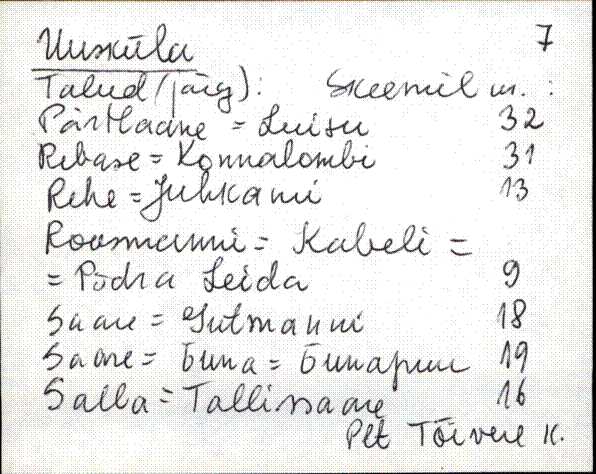 Uusküla 7
Talud (järg): Skeemil nr.:
Pärtlaane = Luisu 32
Rebase = Konnalombi 31
Rehe = Juhkami 13
Roosmanni = Kabeli =
= Põdra Leida 9
Saare = Gutmanni 18
Saare = Бипа = Бипарии 19
Salla = Tallissaare 16
Plt Tõivere K.